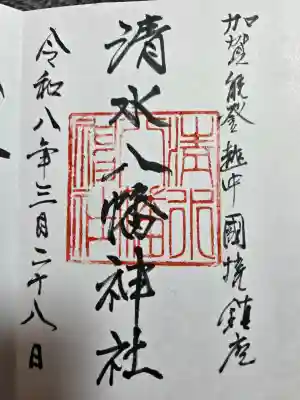 加賀能登越中國境鎮座
清水八幡神社
令和八年三月二十八日